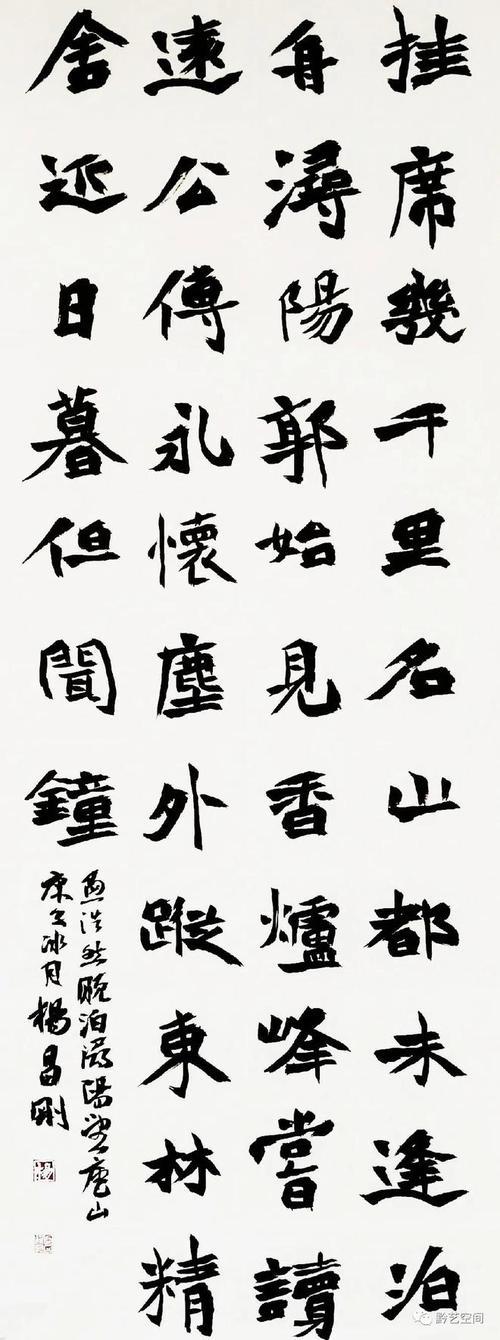 挂席幾千里名山都未逢泊
舟潯陽郭始見香爐峰嘗讀
遠公傳永懷塵外蹤東林精
舍近日暮但聞鐘
孟浩然晚泊潯陽望廬山
庚子冰月楊昌剛
黔艺空间